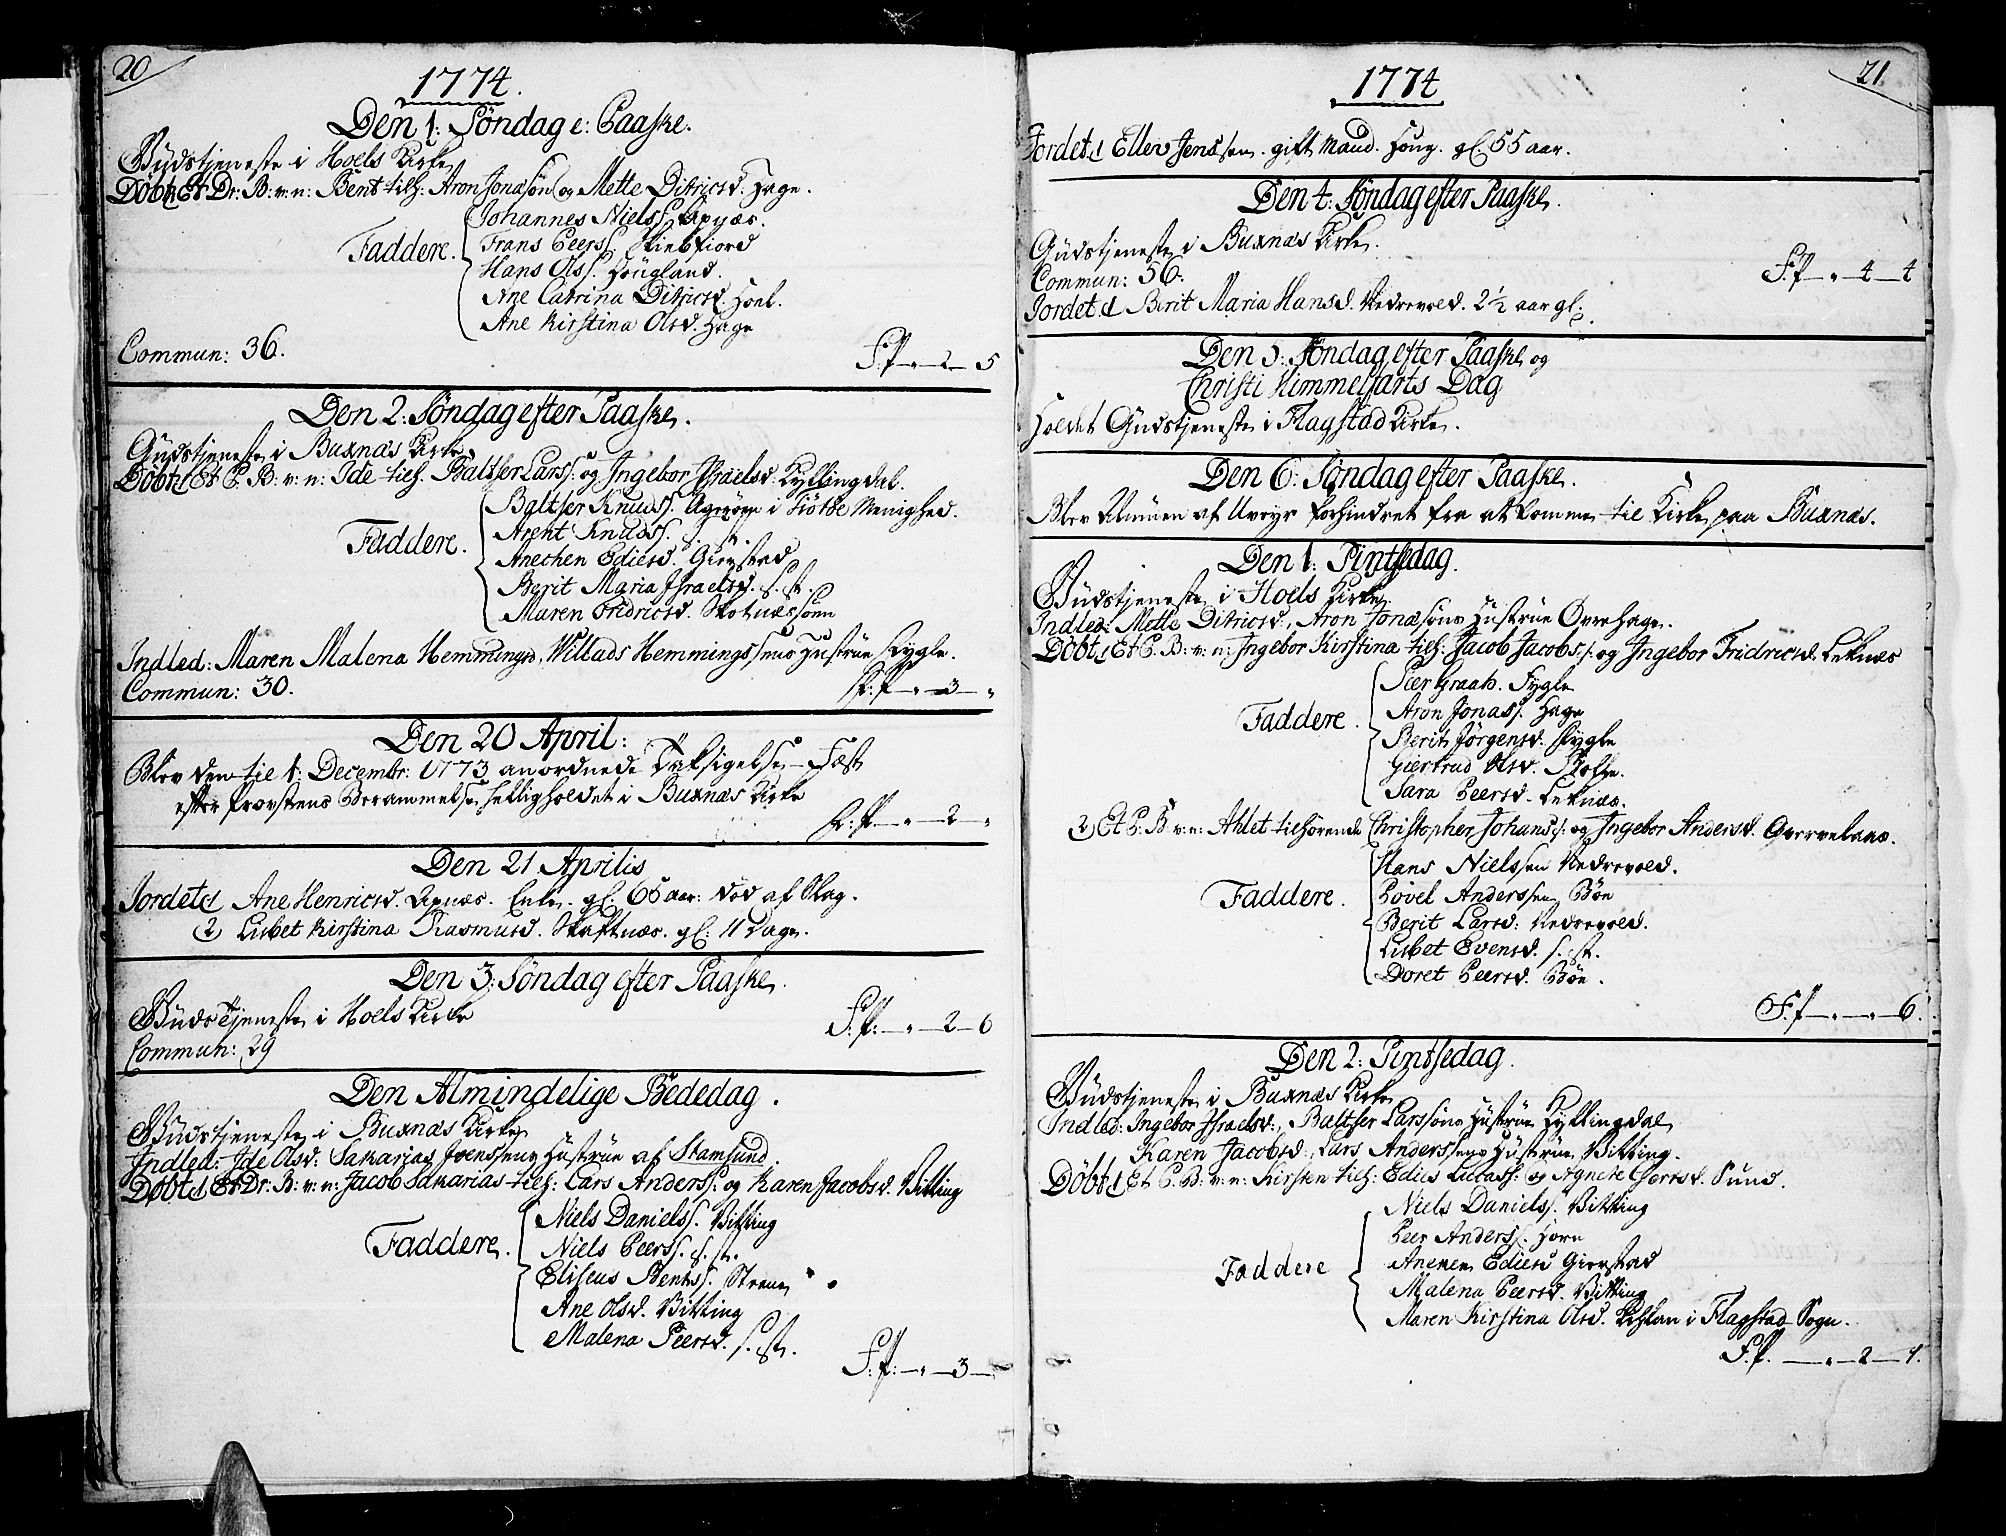 20
1774.
Den 1: Söndag e: Paaske.
Gudstjeneste i Hoels Kirke
Döbt 1 Et Dr: B: v: n: Bent tilh: Aron Jonasön og Mette Ditricsd. Hage.
Faddere.
Johannes Niels: Apnæs.
Frans Peers:
Hans Ols: Hougland.
Ane Catrina Ditricsd. Hoel.
Ane Kirstina Olsd. Hage
Commun: 36.
F: P — " — 2 — 5
Den 2: Söndag efter Paaske.
Gudstjeneste i Buxnæs Kirke
Döbt 1 Et P. B: v: n: Ide tilh. Baltser Lars: og Ingebor Israelsd. Kyllingdal.
Faddere.
Baltser Knuds: i Menighed.
Arent Knuds: s. st.
Anechen Ediesd. Gierstad
Berit Maria Israelsd. s. st.
Maren Fridricsd. Skotnæs
Indled: Maren Malena Hemmingsd, Willads Hemmingssens Hustrue Fygle.
Commun: 30.
F: P — " — 3 — "
Den 20 April:
Blev den til 1: Decembr: 1773 anordnede Taksigelse-Fæst
efter Provstens Berammelse, helligholdet i Buxnæs Kirke
F: P — " — 2 — "
Den 21 Aprilis
Jordet 1 Ane Henricsd. Apnæs. Enke. gl: 66 aar: död af Slag.
2 Lisbet Kirstina Rasmusd. Skaftnæs. gl: 11 Dage.
Den 3: Söndag efter Paaske.
Gudstjeneste i Hoels Kirke
F: P: — " — 2 — 6
Commun: 29
Den Almindelige Bededag.
Gudstjeneste i Buxnæs Kirke
Indled: Ide Olsd: Sakarias Ivenssens Hustrue af Stamsund.
Döbt 1 Et Dr: B: v: n: Jacob Sakarias tilh: Lars Anders: og Karen Jacobsd. Vitting
Faddere.
Niels Daniels: Vitting
Niels Peers: s. st.
Eliseus Bents: Strene
Ane Olsd. Vitting
Malena Peersd. s. st.
F: P: — " — 3 —
21.
1774
Jordet 1 Eller Jenssen. gift Mand. Houg. gl. 55 aar.
Den 4: Söndag efter Paaske.
Gudstjeneste i Buxnæs Kirke.
Commun: 56.
F. P — " — 4 — 4
Jordet 1 Berit Maria Hansd. Nedrevold. 2 1/2 aar gl:
Den 5: Söndag efter Paaske og
Christi Himmelfarts Dag
Holdet Gudstjeneste i Flagstad Kirke.
Den 6: Söndag efter Paaske.
Blev af Uveyr forhindret fra at komme til Kirke paa Buxnæs.
Den 1: Pintsedag.
Gudstjeneste i Hoels Kirke
Indled: Mette Ditricsd., Aron Jonasöns Hustrue Övrehage.
Döbt 1 Et P. B: v: n: Ingebor Kirstina tilh: Jacob Jacobs: og Ingebor Fridricsd. Leknæs
Faddere.
Peer Graah. Fygle
Aron Jonas: Hage
Berit Jörgensd. Fygle
Giertrud Olsd.
Sara Peersd. Leknæs.
2 Et P: B: v: n: Ahlet tilhörende Christopher Johans: og Ingebor Andersd.
Faddere.
Hans Nielssen Nedrevold.
Povel Anderssen Böe
Berit Larsd: Nedrevold.
Lisbet Evensd. s. st.
Doret Peersd. Böe.
F. P — " — " — 6
Den 2: Pintsedag.
Gudstjeneste i Buxnæs Kirke
Indled: Ingebor Israelsd:, Baltser Larssöns Hustrue Kyllingdal
Karen Jacobsd:, Lars Anderssens Hustrue Vitting.
Döbt 1 Et P. B: v: n: Kirsten tilh: Edies Lucas: og Agnete Sund.
Faddere
Niels Daniels: Vitting
Peer Anders: Horn
Aneken Ediesd Gierstad
Malena Peersd. Vitting
Maren Kirstina Olsd. i Flagstad Sogn.
F. P. — " — 2 — 1.